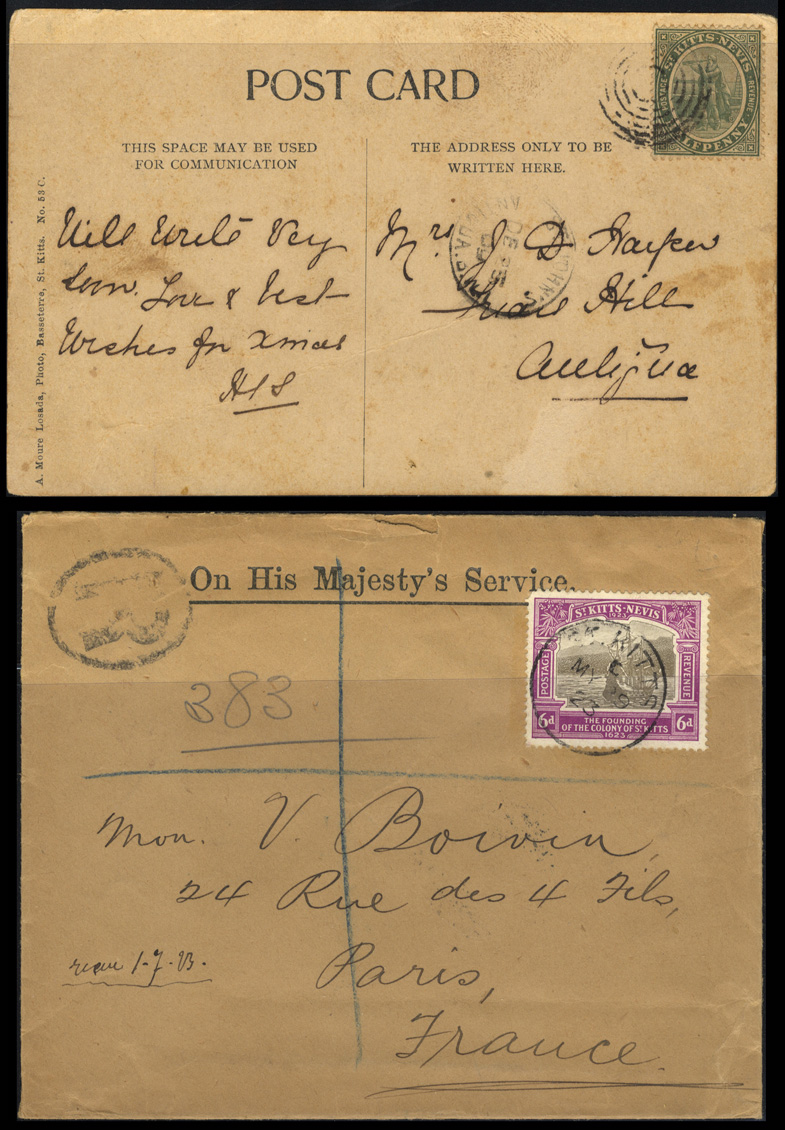 POST CARD
ST KITTS-NEVIS
POSTAGE
REVENUE
THIS SPACE MAY BE USED
FOR COMMUNICATION
THE ADDRESS ONLY TO BE
WRITTEN HERE.
A. Moure Losada, Photo, Basseterre, St. Kitts. No. 53 C.
Will Write Very
Soon. Love & Best
Wishes for Xmas
Mrs J D Harper
Hill
Antigua
On His Majesty's Service.
R
ST KITTS-NEVIS
1923
POSTAGE
REVENUE
6d
THE FOUNDING
OF THE COLONY OF ST KITTS
1623
6d
ST. KITTS
C
MY 9
23
383
Mon. V. Boivin,
24 Rue des 4 Fils,
Paris,
France.